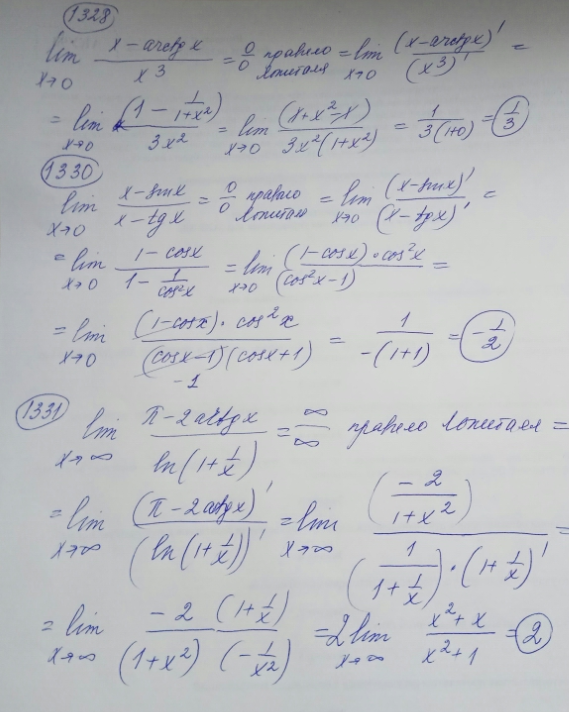 1328
lim x→0 (x - arctg x)/x³ = 0/0 правило Лопиталя = lim x→0 (x - arctg x)'/(x³)' =
= lim x→0 (1 - 1/(1+x²))/3x² = lim x→0 (1+x²-1)/(3x²(1+x²)) = 1/(3(1+0)) = 1/3
1330
lim x→0 (x - sin x)/(x - tg x) = 0/0 правило Лопиталя = lim x→0 (x - sin x)'/(x - tg x)' =
= lim x→0 (1 - cos x)/(1 - 1/cos²x) = lim x→0 (1 - cos x)·cos²x/(cos²x - 1) =
= lim x→0 (1 - cos x)·cos²x/((cos x - 1)(cos x + 1)) = 1/(-(1+1)) = -1/2
-1
1331
lim x→∞ (π - 2arctg x)/ln(1 + 1/x) = ∞/∞ правило Лопиталя =
= lim x→∞ (π - 2arctg x)'/(ln(1 + 1/x))' = lim x→∞ (-2/(1+x²))/((1/(1 + 1/x))·(1 + 1/x)') =
= lim x→∞ -2/(1+x²) (1 + 1/x)/(-1/x²) = 2 lim x→∞ (x² + x)/(x² + 1) = 2